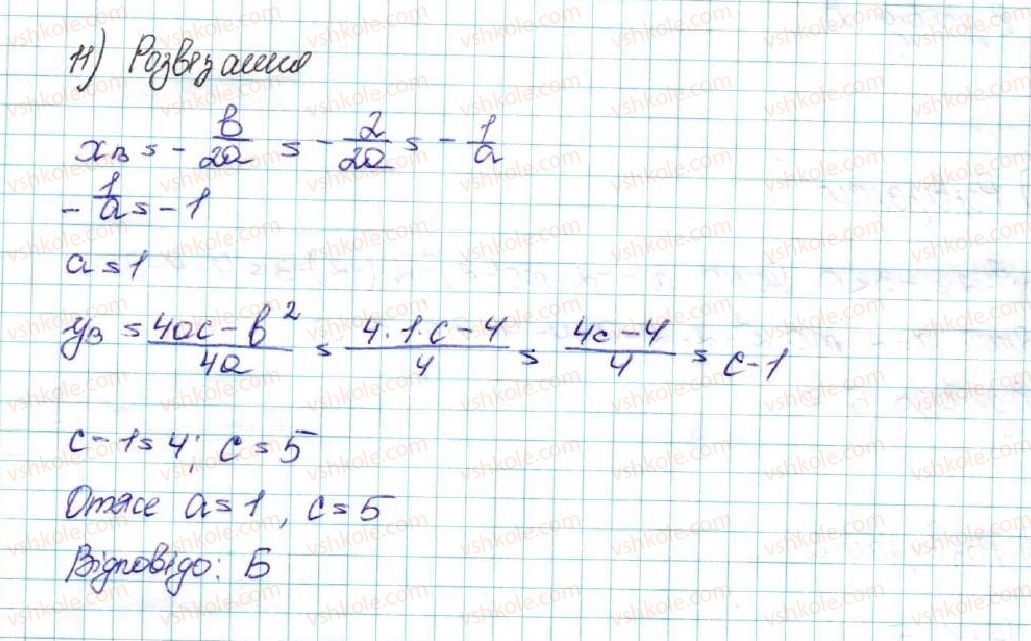 11) Розвязання
xв = - b/2a = - 2/2a = - 1/a
- 1/a = -1
a = 1
yв = 4ac - b²/4a = 4·1·c - 4/4 = 4c - 4/4 = c - 1
c - 1 = 4; c = 5
Отже a = 1, c = 5
Відповідь: Б
vshkole.com